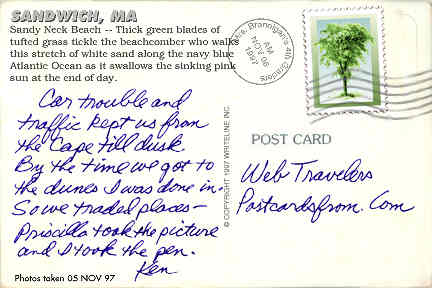 SANDWICH, MA
Sandy Neck Beach -- Thick green blades of
tufted grass tickle the beachcomber who walks
this stretch of white sand along the navy blue
Atlantic Ocean as it swallows the sinking pink
sun at the end of day.
Car trouble and
traffic kept us from
the Cape till dusk.
By the time we got to
the dunes I was done in.
So we traded places—
Priscilla took the picture
and I took the pen.
Ken
Photos taken 05 NOV 97
© COPYRIGHT 1997 WRITELINE INC.
Brannigan's 4th Graders
AM
NOV 06
1997
POST CARD
Web Travelers
Postcardsfrom.Com